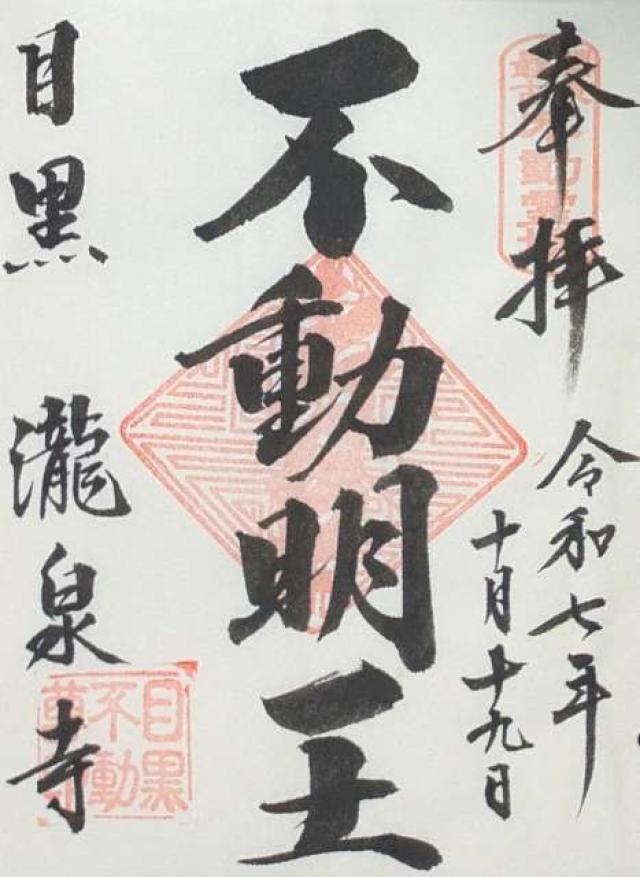 奉拝
令和七年
十月十九日
不動明王
目黒
瀧泉寺
目黒
不動